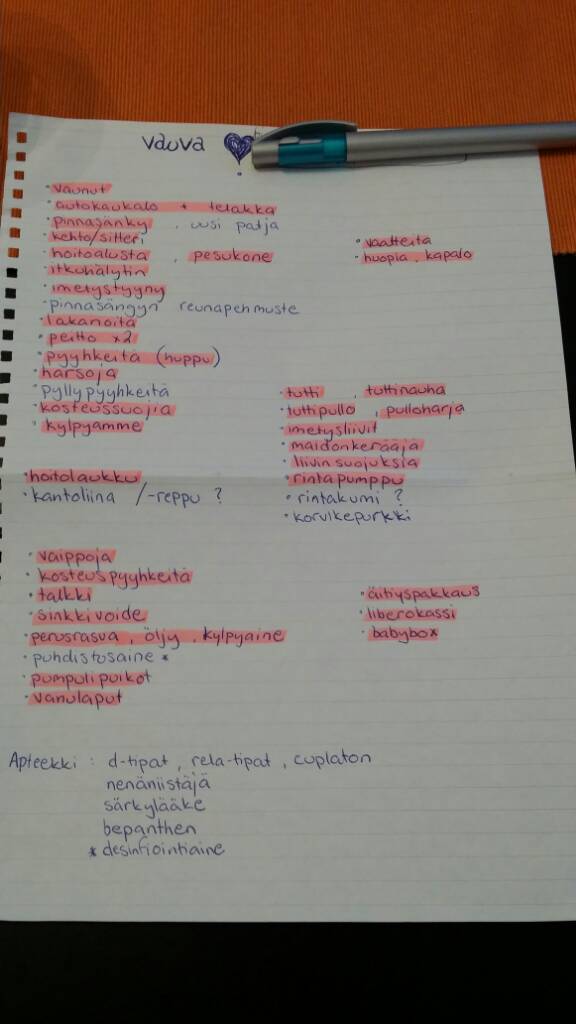 vauva
• vaunut
• autokaukalo + telakka
• pinnasänky , uusi patja
• kehto/sitteri
• hoitoalusta , pesukone
• itkuhälytin
• imetystyyny
• pinnasängyn reunapehmuste
• lakanoita
• peitto x2
• pyyhkeitä (huppu)
• harsoja
• pyllypyyhkeitä
• kosteussuojia
• kylpyamme
• vaatteita
• huopia , kapalo
• tutti , tuttinauha
• tuttipullo , pulloharja
• imetysliivit
• maidonkerääjä
• liivinsuojuksia
• rintapumppu
• rintakumi ?
• korvikepurkki
• hoitolaukku
• kantoliina /-reppu ?
• vaippoja
• kosteuspyyhkeitä
• talkki
• sinkkivoide
• perusrasva , öljy , kylpyaine
• puhdistusaine *
• pumpulipuikot
• vanulaput
• äitiyspakkaus
• liberokassi
• babybox
Apteekki : d-tipat , rela-tipat , cuplaton
nenäniistäjä
särkylääke
bepanthen
* desinfiointiaine